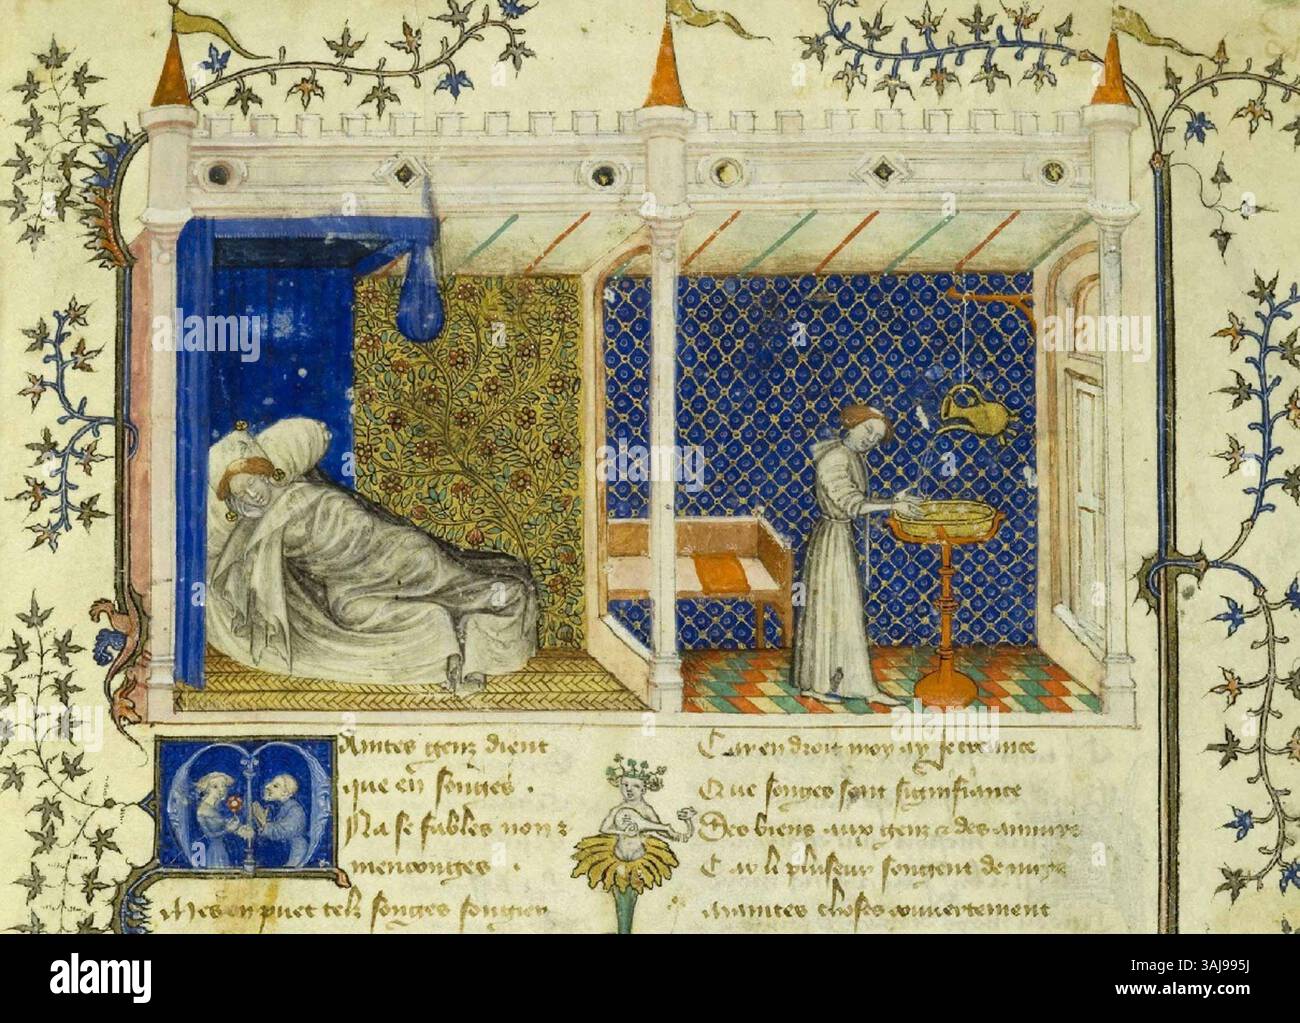 Maintes genz dient
que en songes .
Na se fables non z
menconges .
Mes en puet telz songes songier
Car en droit moy ay je creance
Que songes sont signifiance
Des biens aux genz z des annuyz
Car li pluseur songent de nuyz
Maintes choses couvertement
alamy
alamy
Image ID: 3AJ995J
www.alamy.com